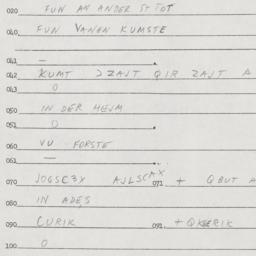 020. FUN AN ANDER STOT
040. FUN VANEN KUMSTE
041. —
042. KUMT ZAJT QIR ZAJT A
043. O
050. IN DER HEJM
051. O
060. VU FORSTE
061. —
070. 071. + QBUT A
080. IN ADES
090. CURIK 091. + QKERIK
100. O